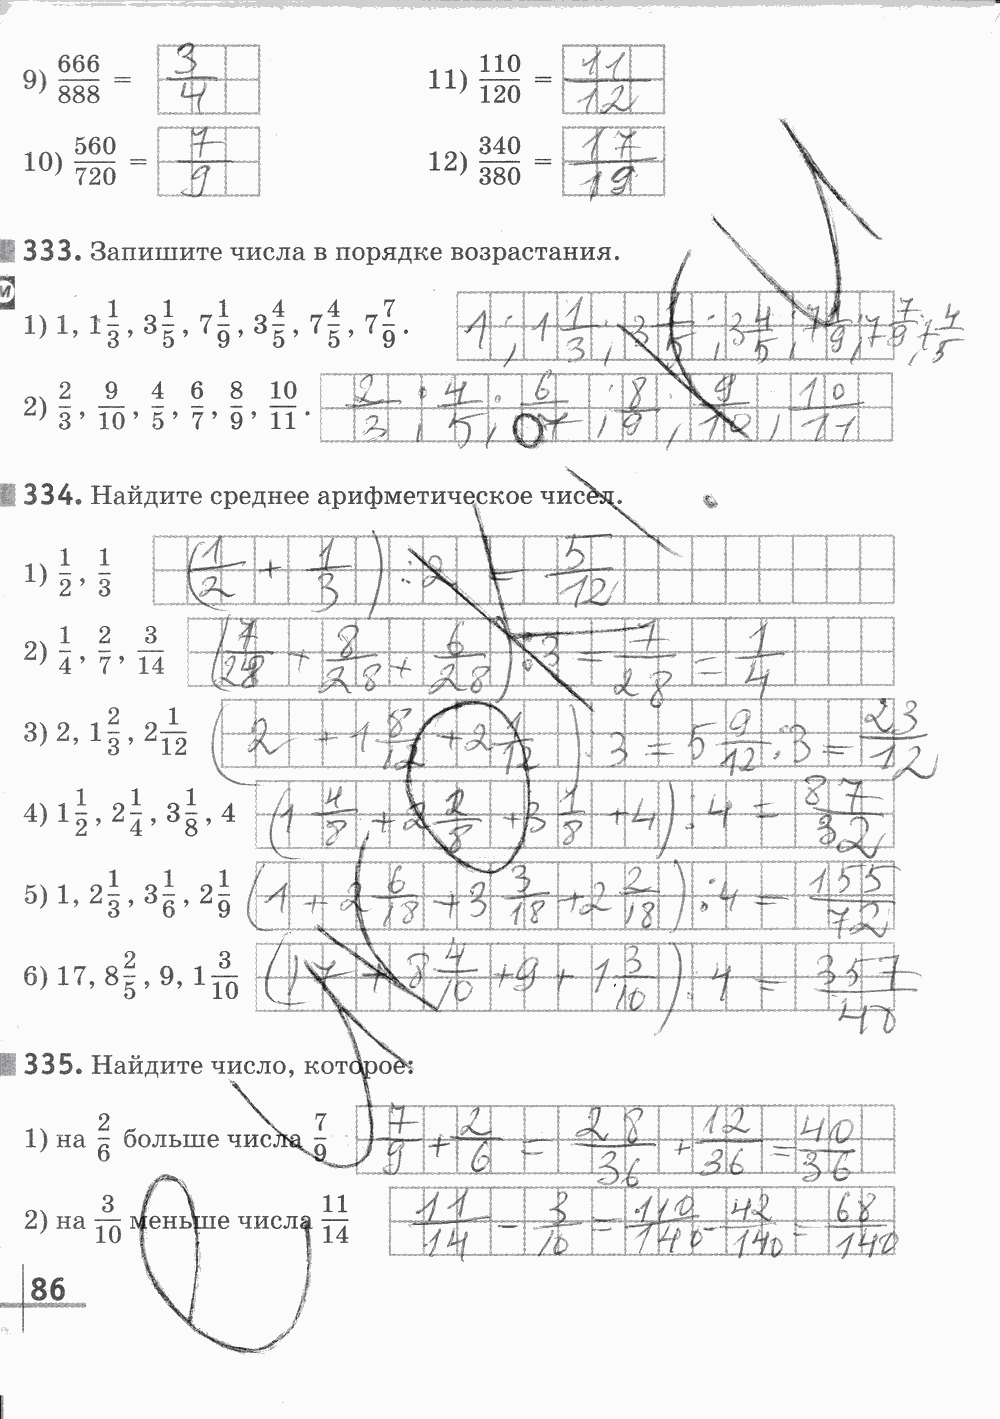 9) 666/888 = 3/4
11) 110/120 = 11/12
10) 560/720 = 7/9
12) 340/380 = 17/19
333. Запишите числа в порядке возрастания.
М
1) 1, 1 1/3, 3 1/5, 7 1/9, 3 4/5, 7 4/5, 7 7/9. 1; 1 1/3; 3 1/5; 3 4/5; 7 1/9; 7 7/9; 7 4/5
2) 2/3, 9/10, 4/5, 6/7, 8/9, 10/11. 2/3; 4/5; 6/7; 8/9; 9/10; 10/11
334. Найдите среднее арифметическое чисел.
1) 1/2, 1/3 (1/2 + 1/3) : 2 = 5/12
2) 1/4, 2/7, 3/14 (7/28 + 8/28 + 6/28) : 3 = 7/28 = 1/4
3) 2, 1 2/3, 2 1/12 (2 + 1 8/12 + 2 1/12) : 3 = 5 9/12 : 3 = 23/12
4) 1 1/2, 2 1/4, 3 1/8, 4 (1 4/8 + 2 2/8 + 3 1/8 + 4) : 4 = 87/32
5) 1, 2 1/3, 3 1/6, 2 1/9 (1 + 2 6/18 + 3 3/18 + 2 2/18) : 4 = 155/72
6) 17, 8 2/5, 9, 1 3/10 (17 + 8 4/10 + 9 + 1 3/10) : 4 = 357/40
335. Найдите число, которое:
1) на 2/6 больше числа 7/9 7/9 + 2/6 = 28/36 + 12/36 = 40/36
2) на 3/10 меньше числа 11/14 11/14 - 3/10 = 110/140 - 42/140 = 68/140
86